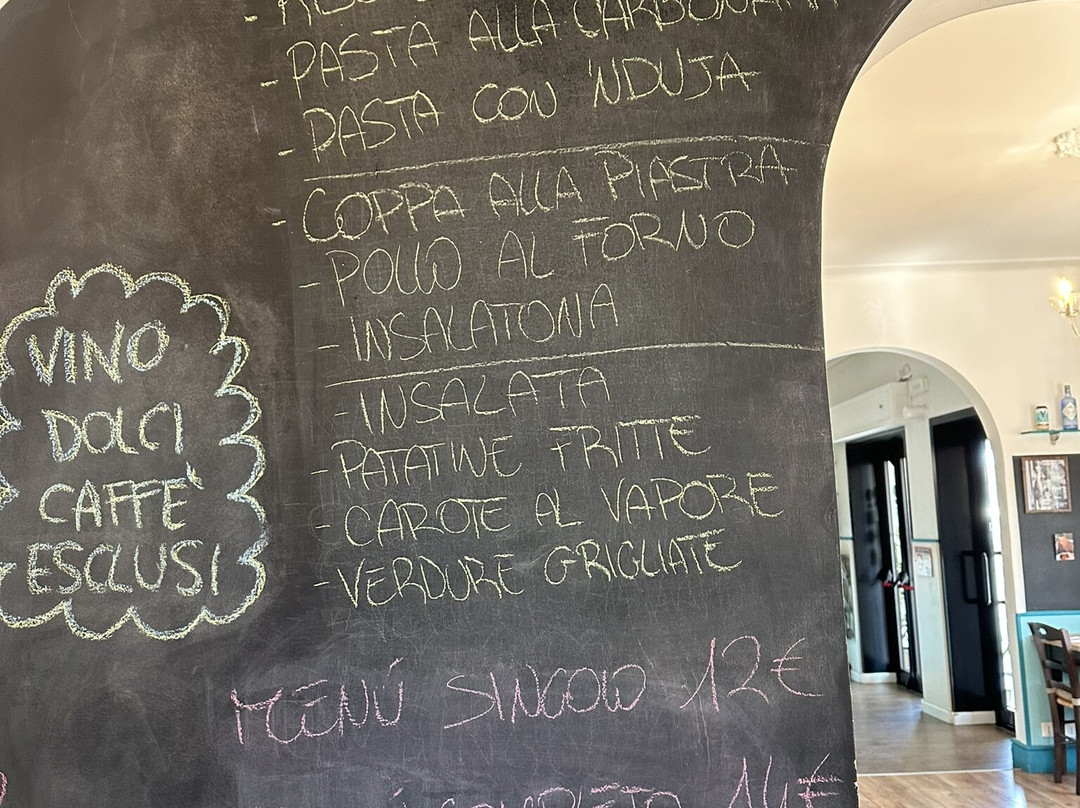 - PASTA ALLA CARBONARA
- PASTA CON 'NDUJA
- COPPA ALLA PIASTRA
- POLLO AL FORNO
- INSALATONA
- INSALATA
- PATATINE FRITTE
- CAROTE AL VAPORE
- VERDURE GRIGLIATE
VINO
DOLCI
CAFFÈ
ESCLUSI
MENÚ SINGOLO 12€
COMPLETO 14€